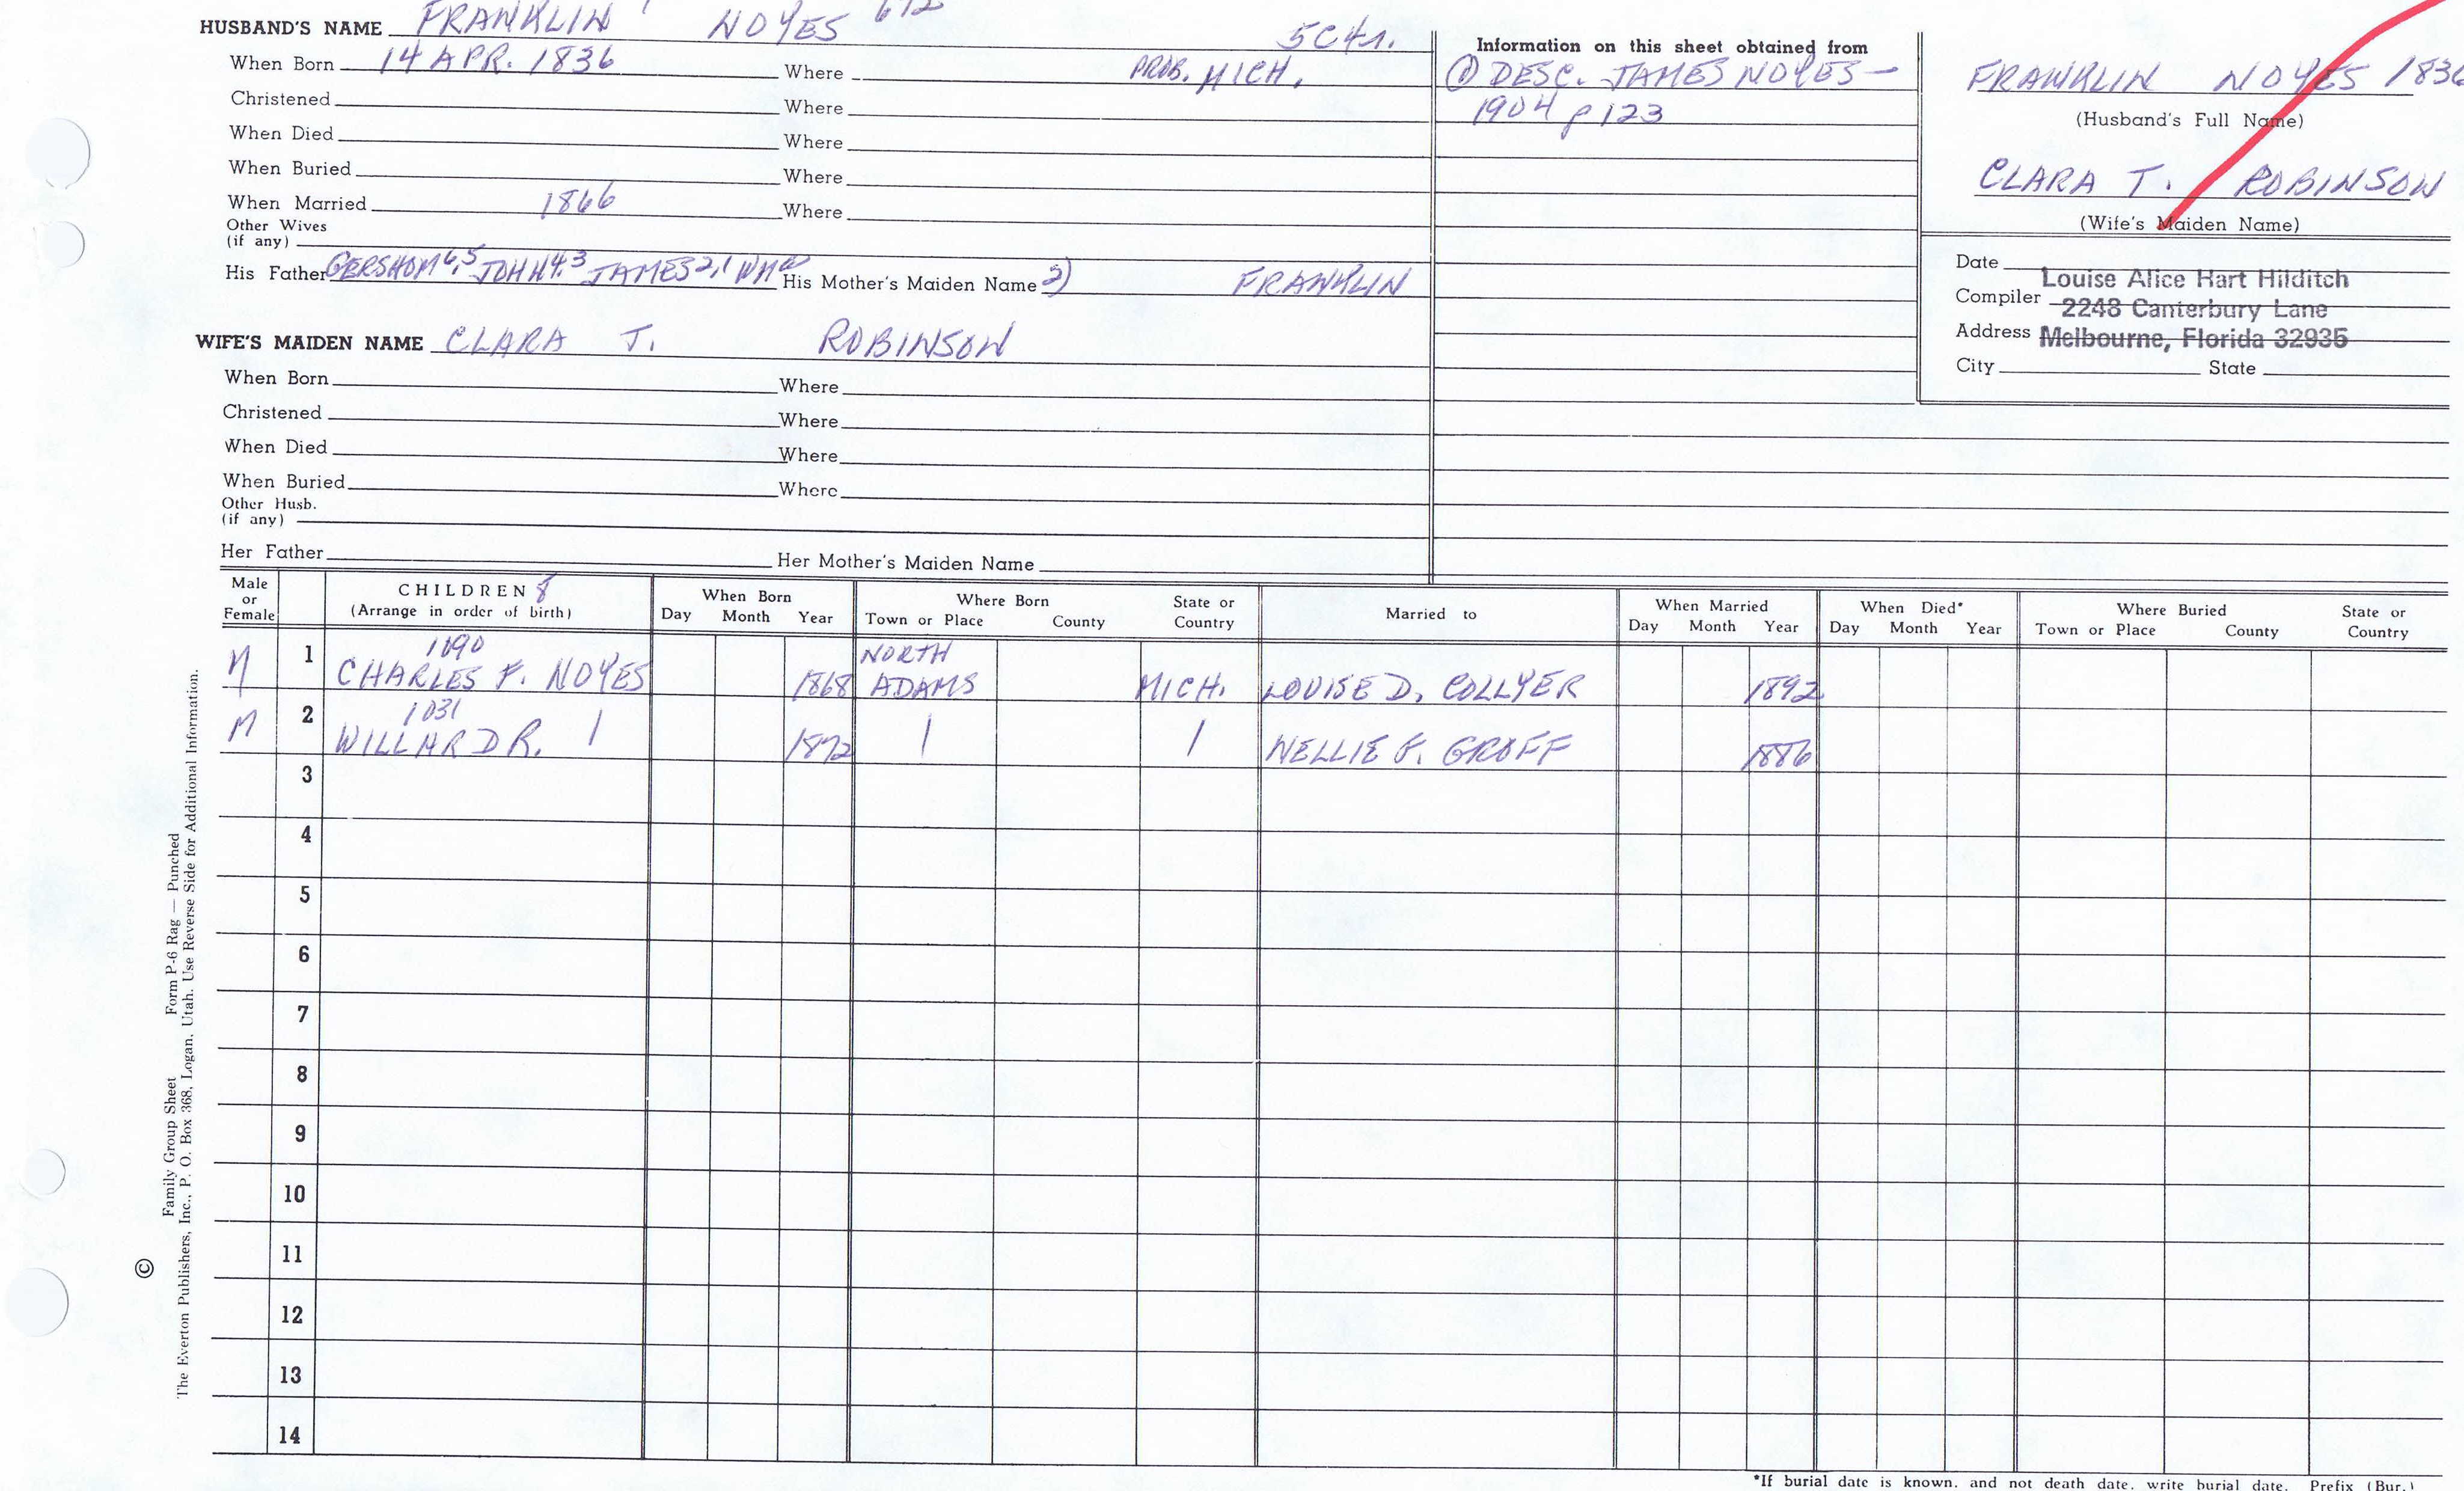 HUSBAND'S NAME FRANKLIN 7 NOYES 672 5C4r.
When Born 14 APR. 1836 Where PROB. MICH.
Christened Where
When Died Where
When Buried Where
When Married 1866 Where
Other Wives
(if any)
His Father GERSHOM6,5 JOHN4,3 JAMES2,1 WMa His Mother's Maiden Name 2) FRANKLIN
WIFE'S MAIDEN NAME CLARA T. ROBINSON
When Born Where
Christened Where
When Died Where
When Buried Where
Other Husb.
(if any)
Her Father Her Mother's Maiden Name
Information on this sheet obtained from
① DESC. JAMES NOYES —
1904 p 123
FRANKLIN NOYES 1836
(Husband's Full Name)
CLARA T. ROBINSON
(Wife's Maiden Name)
Date
Louise Alice Hart Hilditch
Compiler
2248 Canterbury Lane
Address Melbourne, Florida 32935
City State
Male or Female
CHILDREN 8
(Arrange in order of birth)
When Born
Day Month Year
Where Born
Town or Place County State or Country
Married to
When Married
Day Month Year
When Died*
Day Month Year
Where Buried
Town or Place County State or Country
1090 NORTH
M 1 CHARLES F. NOYES 1868 ADAMS MICH. LOUISE D. COLLYER 1892
1031
M 2 WILLARD R. | 1872 | | NELLIE F. GROFF 1886
3
4
5
6
7
8
9
10
11
12
13
14
*If burial date is known, and not death date, write burial date. Prefix (Bur.)
Family Group Sheet Form P-6 Rag — Punched
© The Everton Publishers, Inc., P. O. Box 368, Logan, Utah. Use Reverse Side for Additional Information.